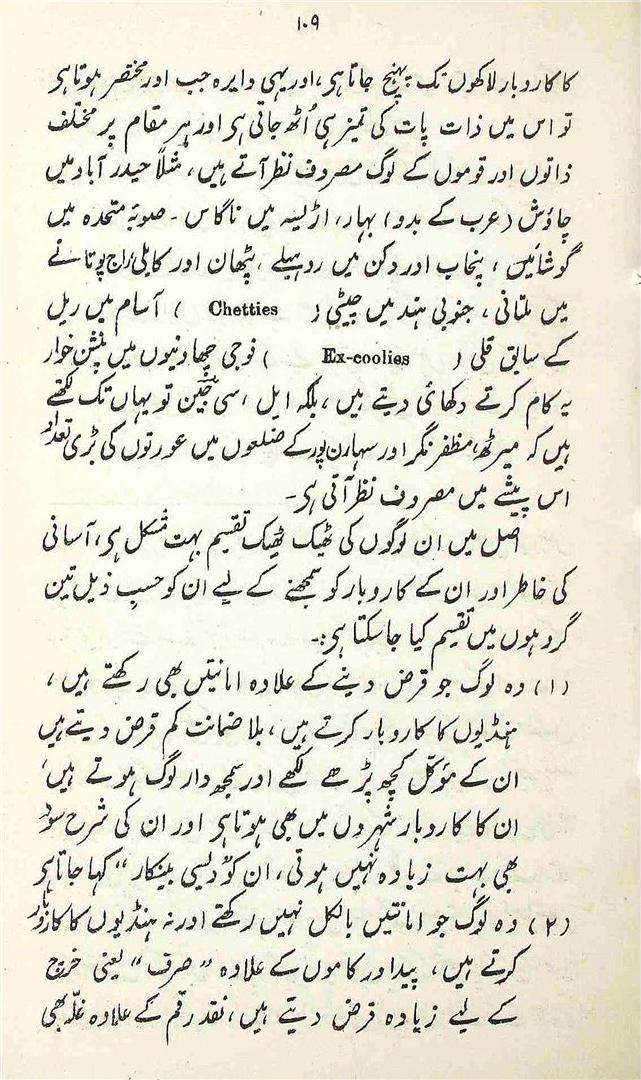 ۱۰۹
کا کاروبار لاکھوں تک پہنچ جاتا ہی، اور یہی دایرہ جب اور مختصر ہوتا ہی
تو اس میں ذات پات کی تمیز ہی اُٹھ جاتی ہی اور ہر مقام پر مختلف
ذاتوں اور قوموں کے لوگ مصروف نظر آتے ہیں، مثلاً حیدرآباد میں
چاؤش (عرب کے بدو) بہار، اڑلیسہ میں ناگاس ۔ صوبۂ متحدہ میں
گوشائیں، پنجاب اور دکن میں روہیلے، پٹھان اور کابلی راجپوتانے
میں ملتانی، جنوبی ہند میں چیٹی (Chetties) آسام میں ریل
کے سابق قلی (Ex-coolies) فوجی چھاونیوں میں پنشن خوار
یہ کام کرتے دکھائی دیتے ہیں، بلکہ ایل، سی جین تو یہاں تک لکھتے
ہیں کہ میرٹھ، مظفرنگر اور سہارن پور کے ضلعوں میں عورتوں کی بڑی تعداد
اس پیشے میں مصروف نظر آتی ہی۔
اصل میں ان لوگوں کی ٹھیک ٹھیک تقسیم بہت مشکل ہی، آسانی
کی خاطر اور ان کے کاروبار کو سمجھنے کے لیے ان کو حسبِ ذیل تین
گروہوں میں تقسیم کیا جاسکتا ہی:۔
(۱) وہ لوگ جو قرض دینے کے علاوہ امانتیں بھی رکھتے ہیں،
ہنڈیوں کا کاروبار کرتے ہیں، بلا ضمانت کم قرض دیتے ہیں
ان کے مؤکّل کچھ پڑھے لکھے اور سمجھ دار لوگ ہوتے ہیں،
ان کا کاروبار شہروں میں بھی ہوتا ہی اور ان کی شرح سود
بھی بہت زیادہ نہیں ہوتی، ان کو ”دیسی بینکار“ کہا جاتا ہی
(۲) وہ لوگ جو امانتیں بالکل نہیں رکھتے اور نہ ہنڈیوں کا کاروبار
کرتے ہیں، پیداور کاموں کے علاوہ ”صرف“ یعنی خرچ
کے لیے زیادہ قرض دیتے ہیں، نقد رقم کے علاوہ غلّہ بھی